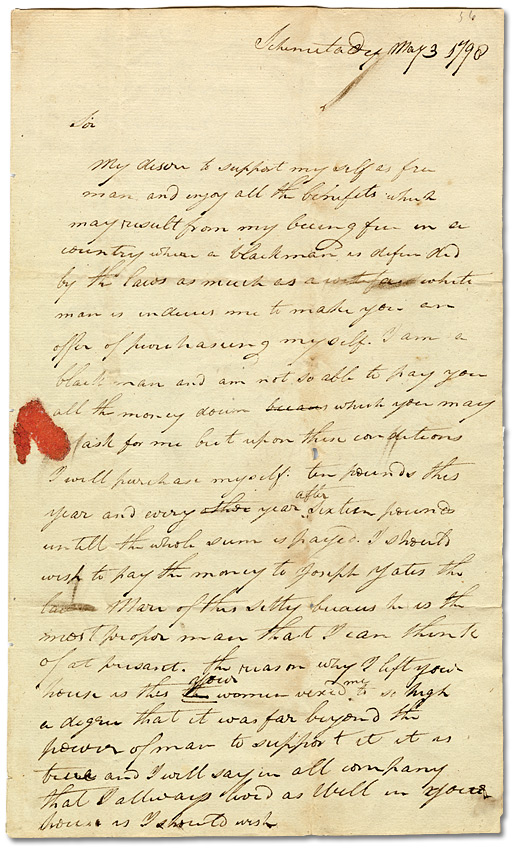 56
Schenectady May 3 1798
Sir
My desire to support my self as free
man and enjoy all the benefits which
may result from my being free in a
country where a blackman is defended
by the laws as much as a white
man is induces me to make you an
offer of purchasing my self. I am a
black man and am not so able to pay you
all the money down becaus which you may
ask for me but upon these conditions
I will purchase myself. ten pounds this
year and every other year after sixteen pounds
untill the whole sum is payed. I should
wish to pay the money to Joseph Yates the
Mare of this sitty becaus he is the
most propor man that I can think
of at presant. the reason why I left your
house is this your women vexed me to so high
a degree that it was far beyond the
power of man to support it it is
true and I will say in all company
that I allways lived as Well in your
house as I should wish